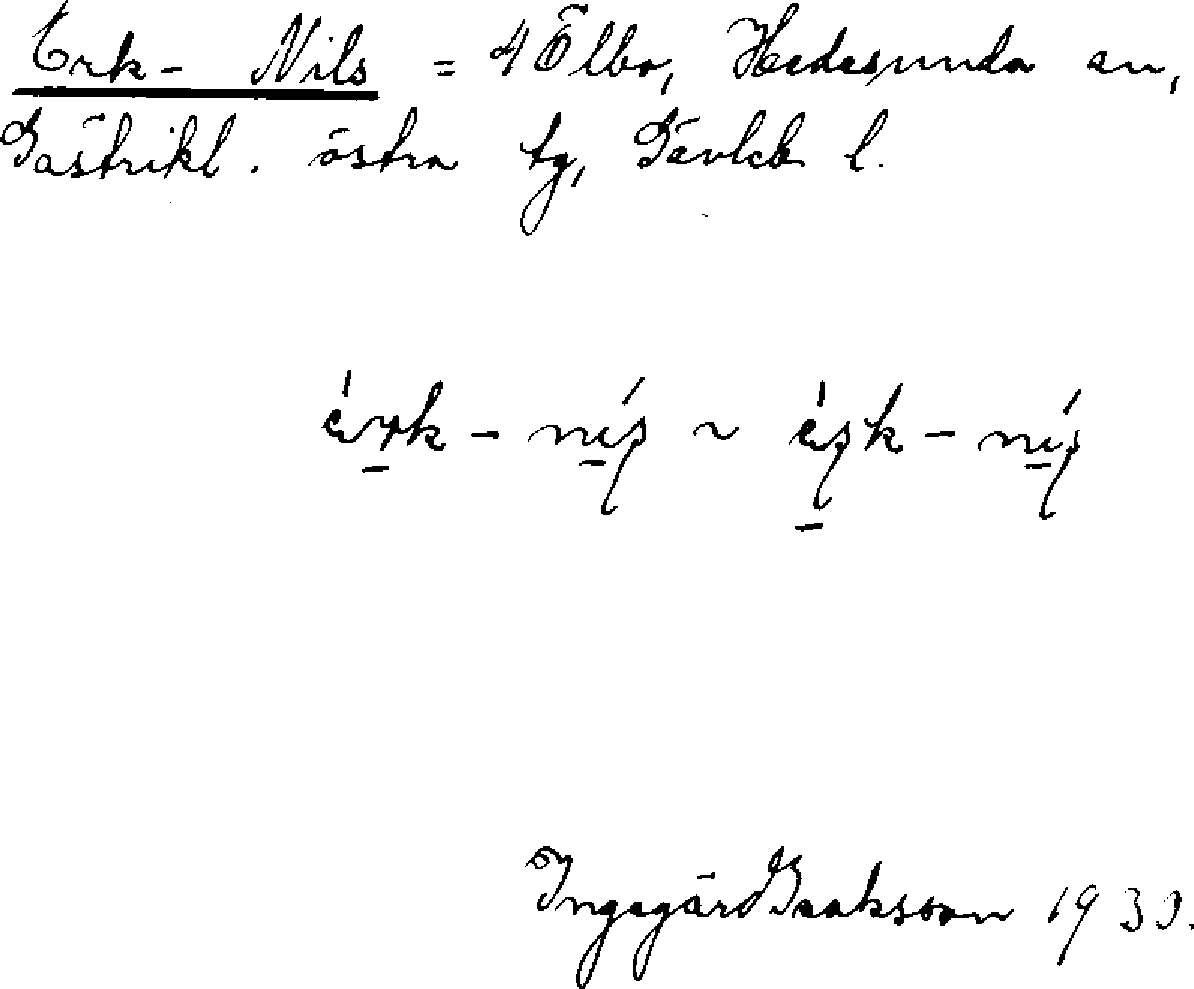 Erk- Nils = 4 Ölbo, Hedesunda sn,
Gästrikl. östra tg, Gävleb l.
Ingegärd Isaksson 1930.